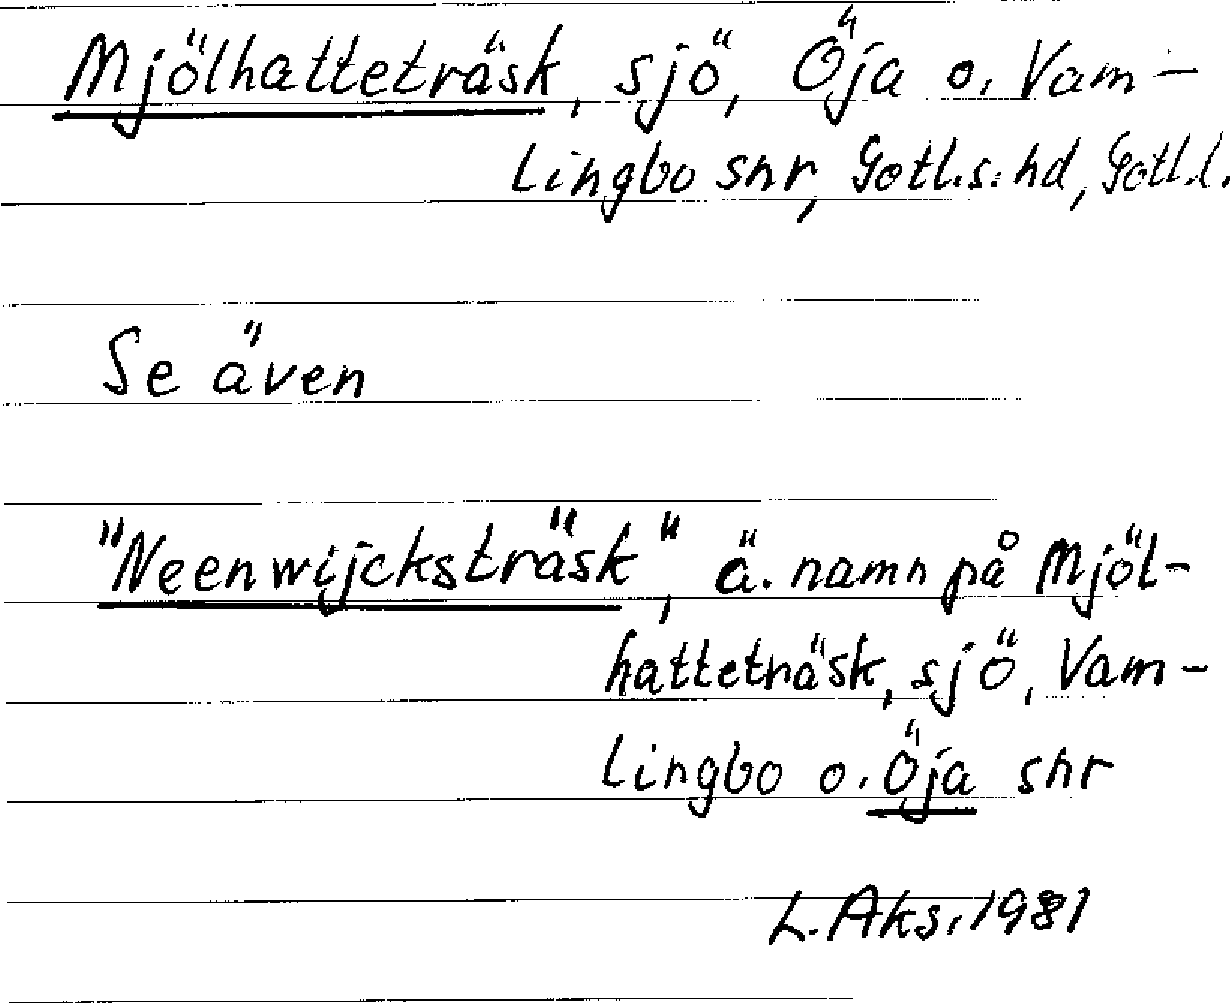 Mjölhatteträsk, sjö, Öja o. Vam-
lingbo snr, Gotl.s. hd, Gotl.l.
Se även
"Neenwijcksträsk", ä. namn på Mjöl-
hatteträsk, sjö, Vam-
lingbo o. Öja snr
L. Aks. 1981